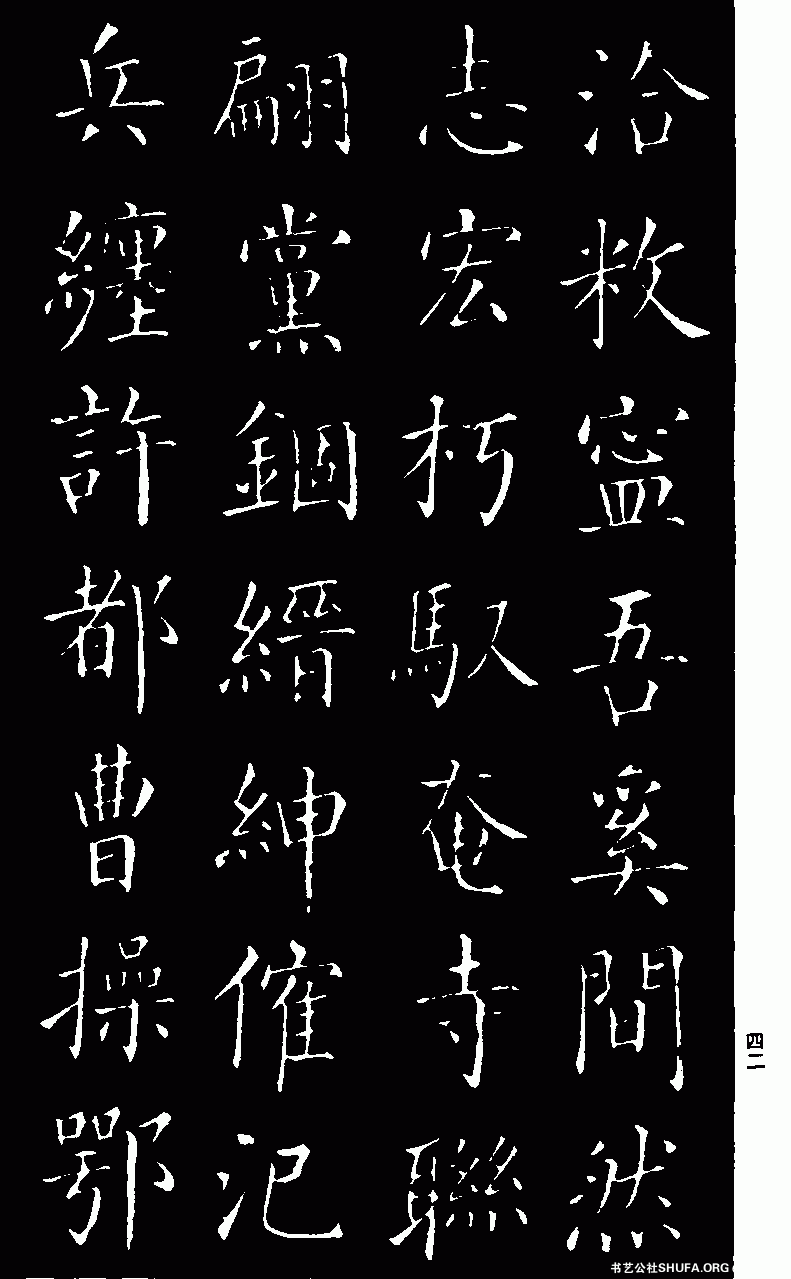 洽敉寍吾奚間然
志宏朽馭奄寺聯
翩黨錮縉紳傕汜
兵纏許都曹操鄂
四二
书艺公社SHUFA.ORG